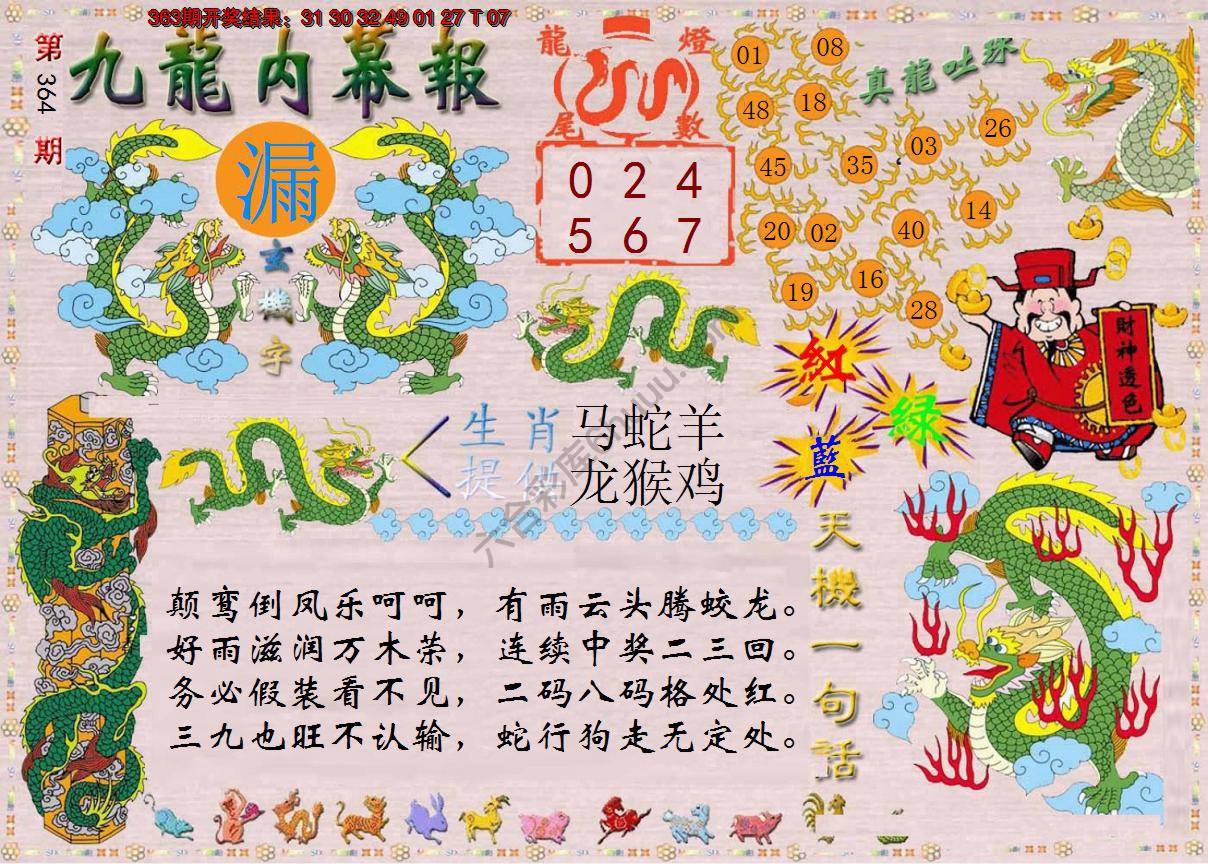 363期开奖结果：31 30 32 49 01 27 T 07
第364期
九龍内幕報
漏
玄機字
龍燈
尾數
0 2 4
5 6 7
真龍吐珠
01 08
48 18
45 35 03 26
20 02 40 14
19 16 28
財神透色
紅
綠
藍
生肖 马蛇羊
提供 龙猴鸡
颠鸾倒凤乐呵呵，有雨云头腾蛟龙。
好雨滋润万木荣，连续中奖二三回。
务必假装看不见，二码八码格处红。
三九也旺不认输，蛇行狗走无定处。
天機一句話